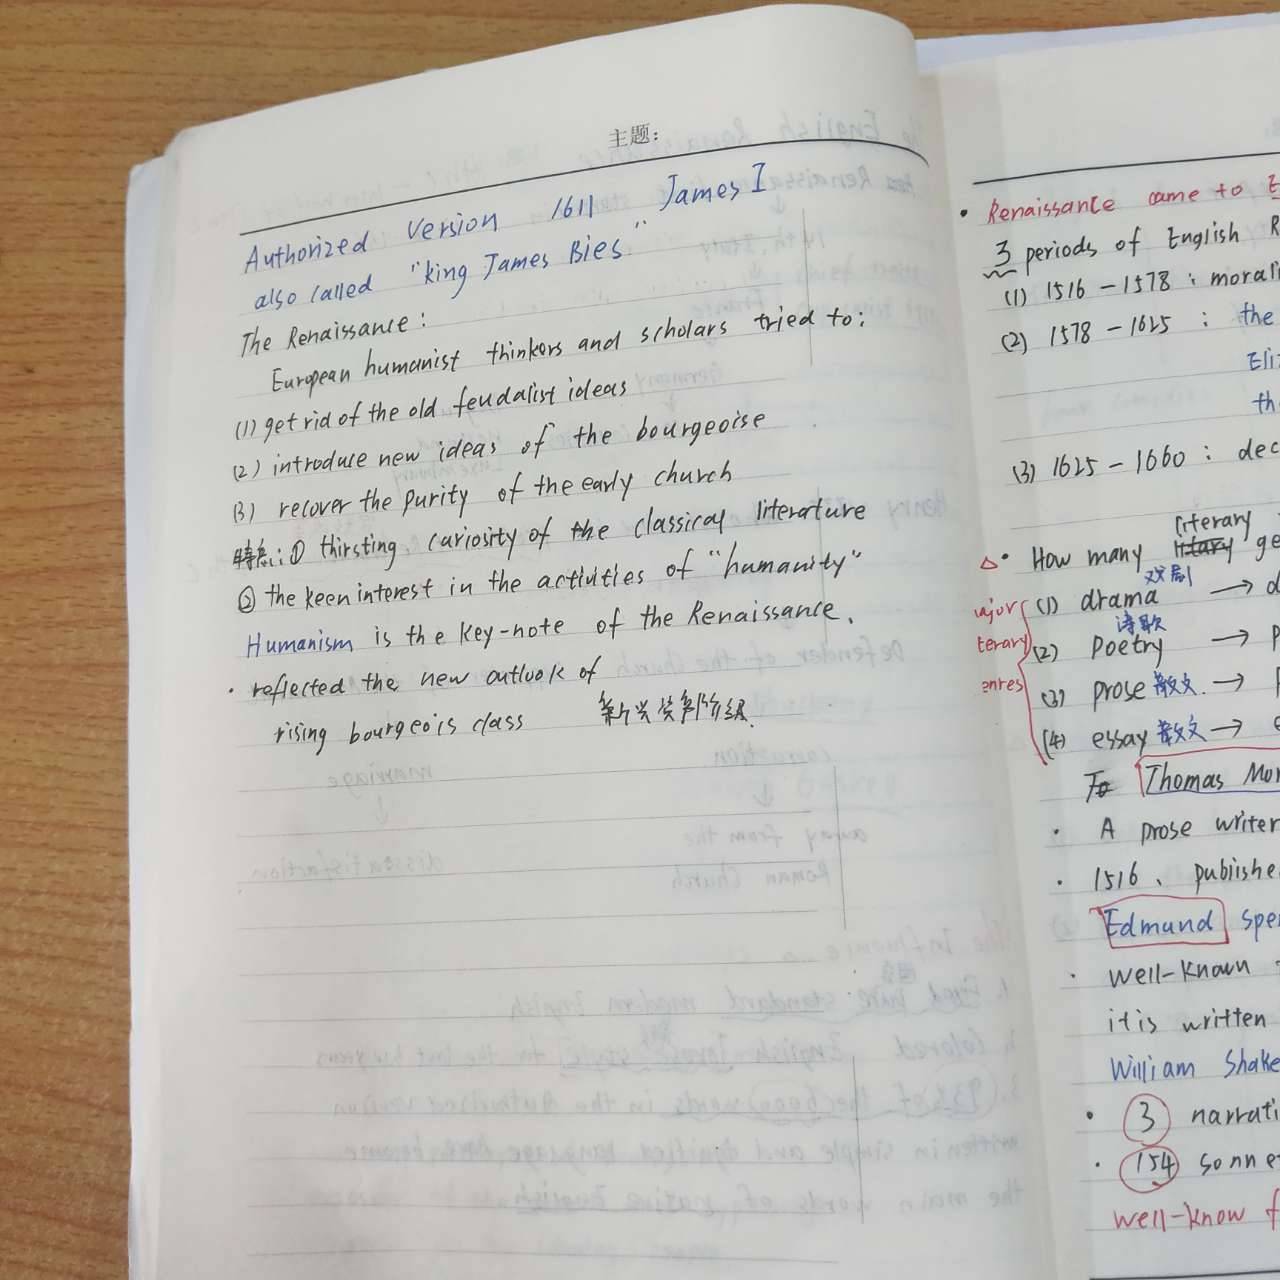 主题:
Authorized Version 1611 James I
also called "king James Bies"
The Renaissance:
European humanist thinkers and scholars tried to:
(1) get rid of the old feudalist ideas
(2) introduce new ideas of the bourgeoise
(3) recover the purity of the early church
特点: ① thirsting curiosity of the classical literature
② the keen interest in the activities of "humanity"
Humanism is the key-note of the Renaissance.
· reflected the new outlook of
rising bourgeois class 新兴资产阶级.
· Renaissance came to E
3 periods of English R
(1) 1516-1578: morali
(2) 1578-1625: the
Eli
th
(3) 1625-1660: dec
literary
△· How many ge
戏剧
ajor (1) drama → d
诗歌
terary (2) Poetry → p
enres (3) prose 散文. →
(4) essay 散文 → e
Thomas Mor
· A prose writer
· 1516、 publishe
Edmund Spen
· well-known
it is written
William Shake
· 3 narrati
· 154 sonne
well-know f